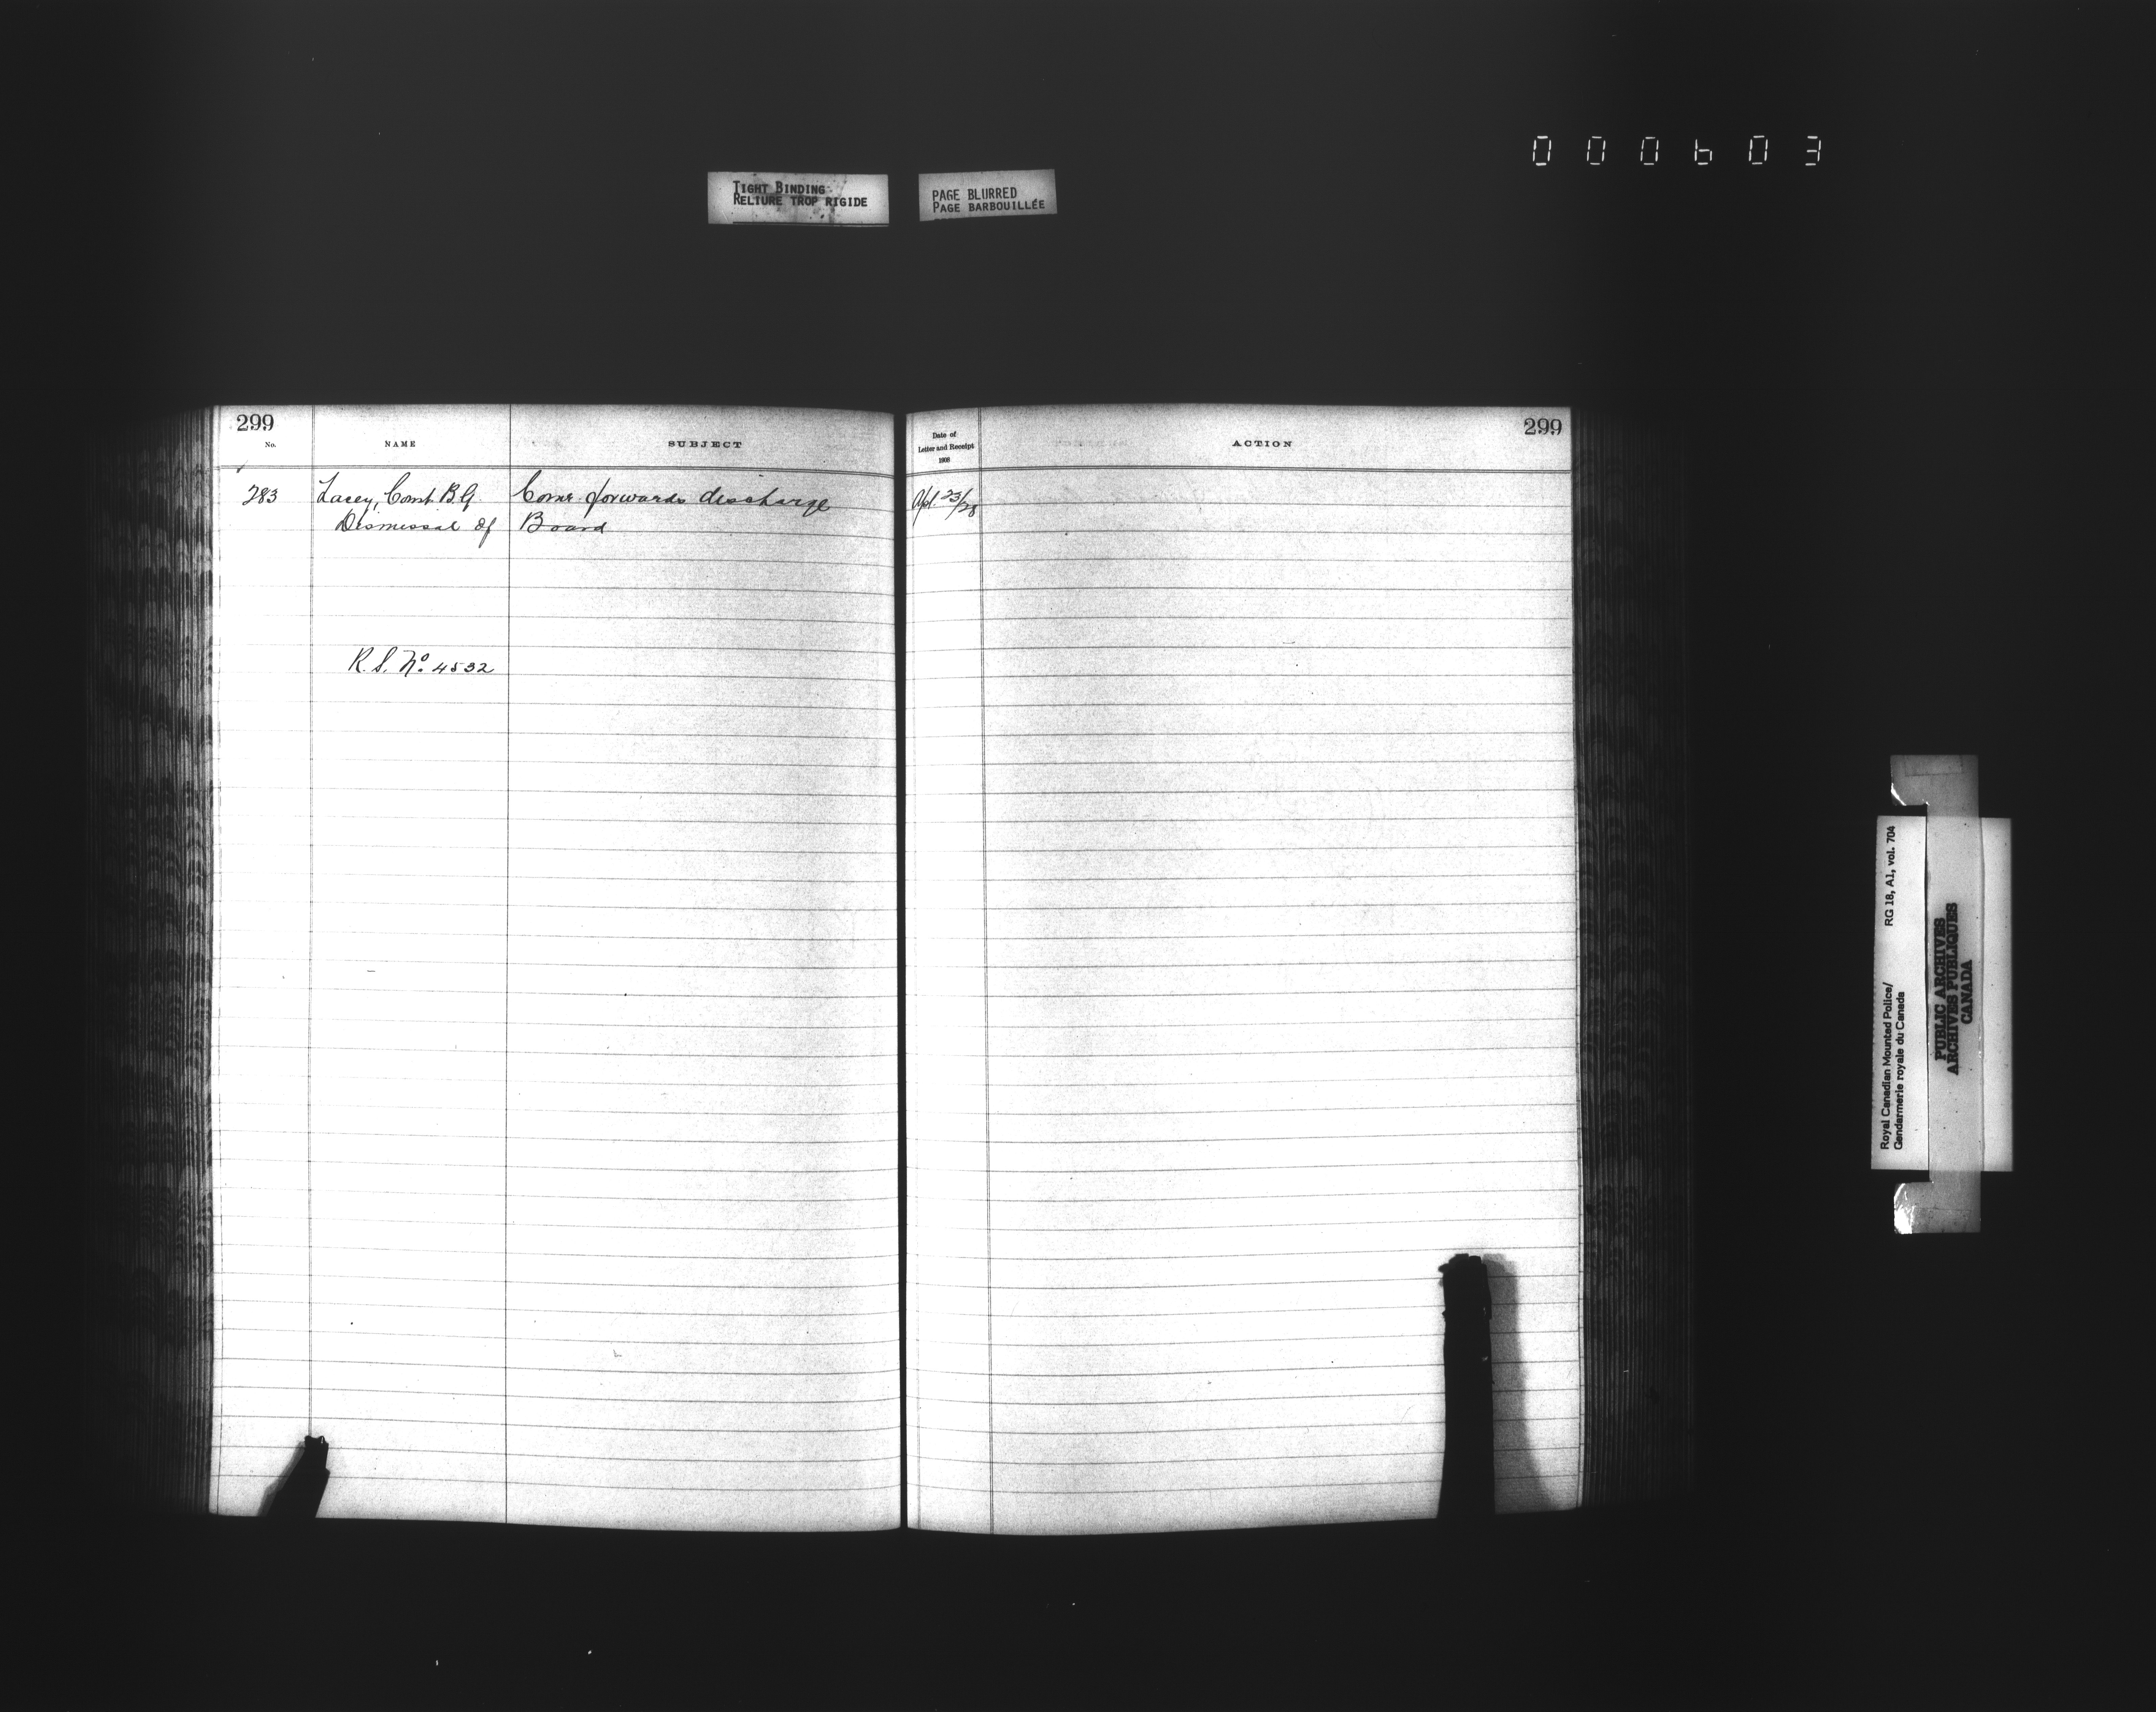 000603
TIGHT BINDING
RELIURE TROP RIGIDE
PAGE BLURRED
PAGE BARBOUILLÉE
299
No.
NAME
SUBJECT
Date of
Letter and Receipt
1908
ACTION
299
283
Lacey, Const. B.G.
Comr. forwards discharge
Apl. 23/28
Dismissal of
Board
R.S. No. 4532
Royal Canadian Mounted Police/
Gendarmerie royale du Canada
RG 18, A1, vol. 704
PUBLIC ARCHIVES
ARCHIVES PUBLIQUES
CANADA